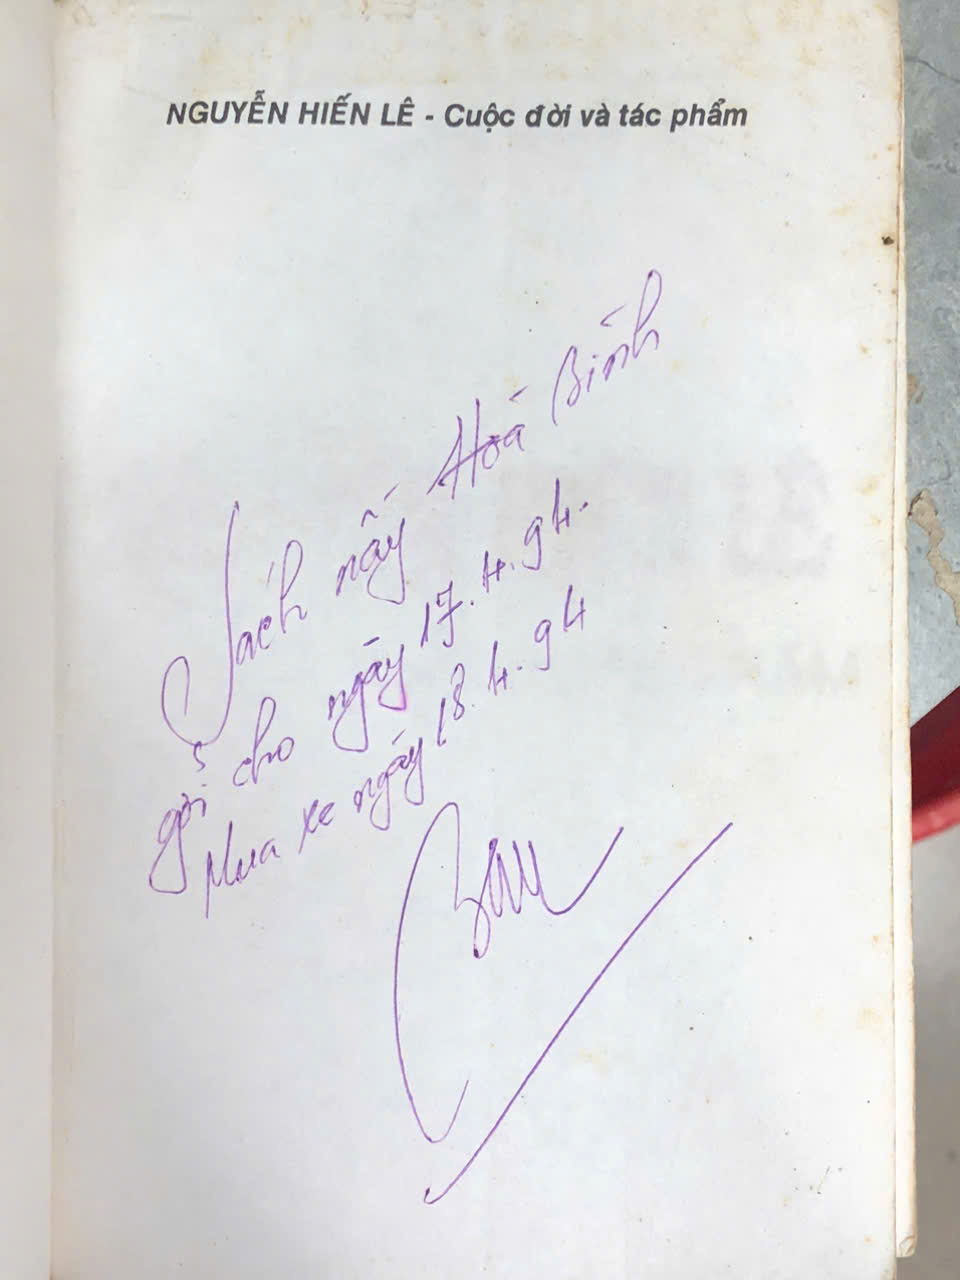 NGUYỄN HIẾN LÊ - Cuộc đời và tác phẩm
Sách nầy Hoá Bình
gởi cho ngày 17.4.94.
Mua xe ngày 18.4.94